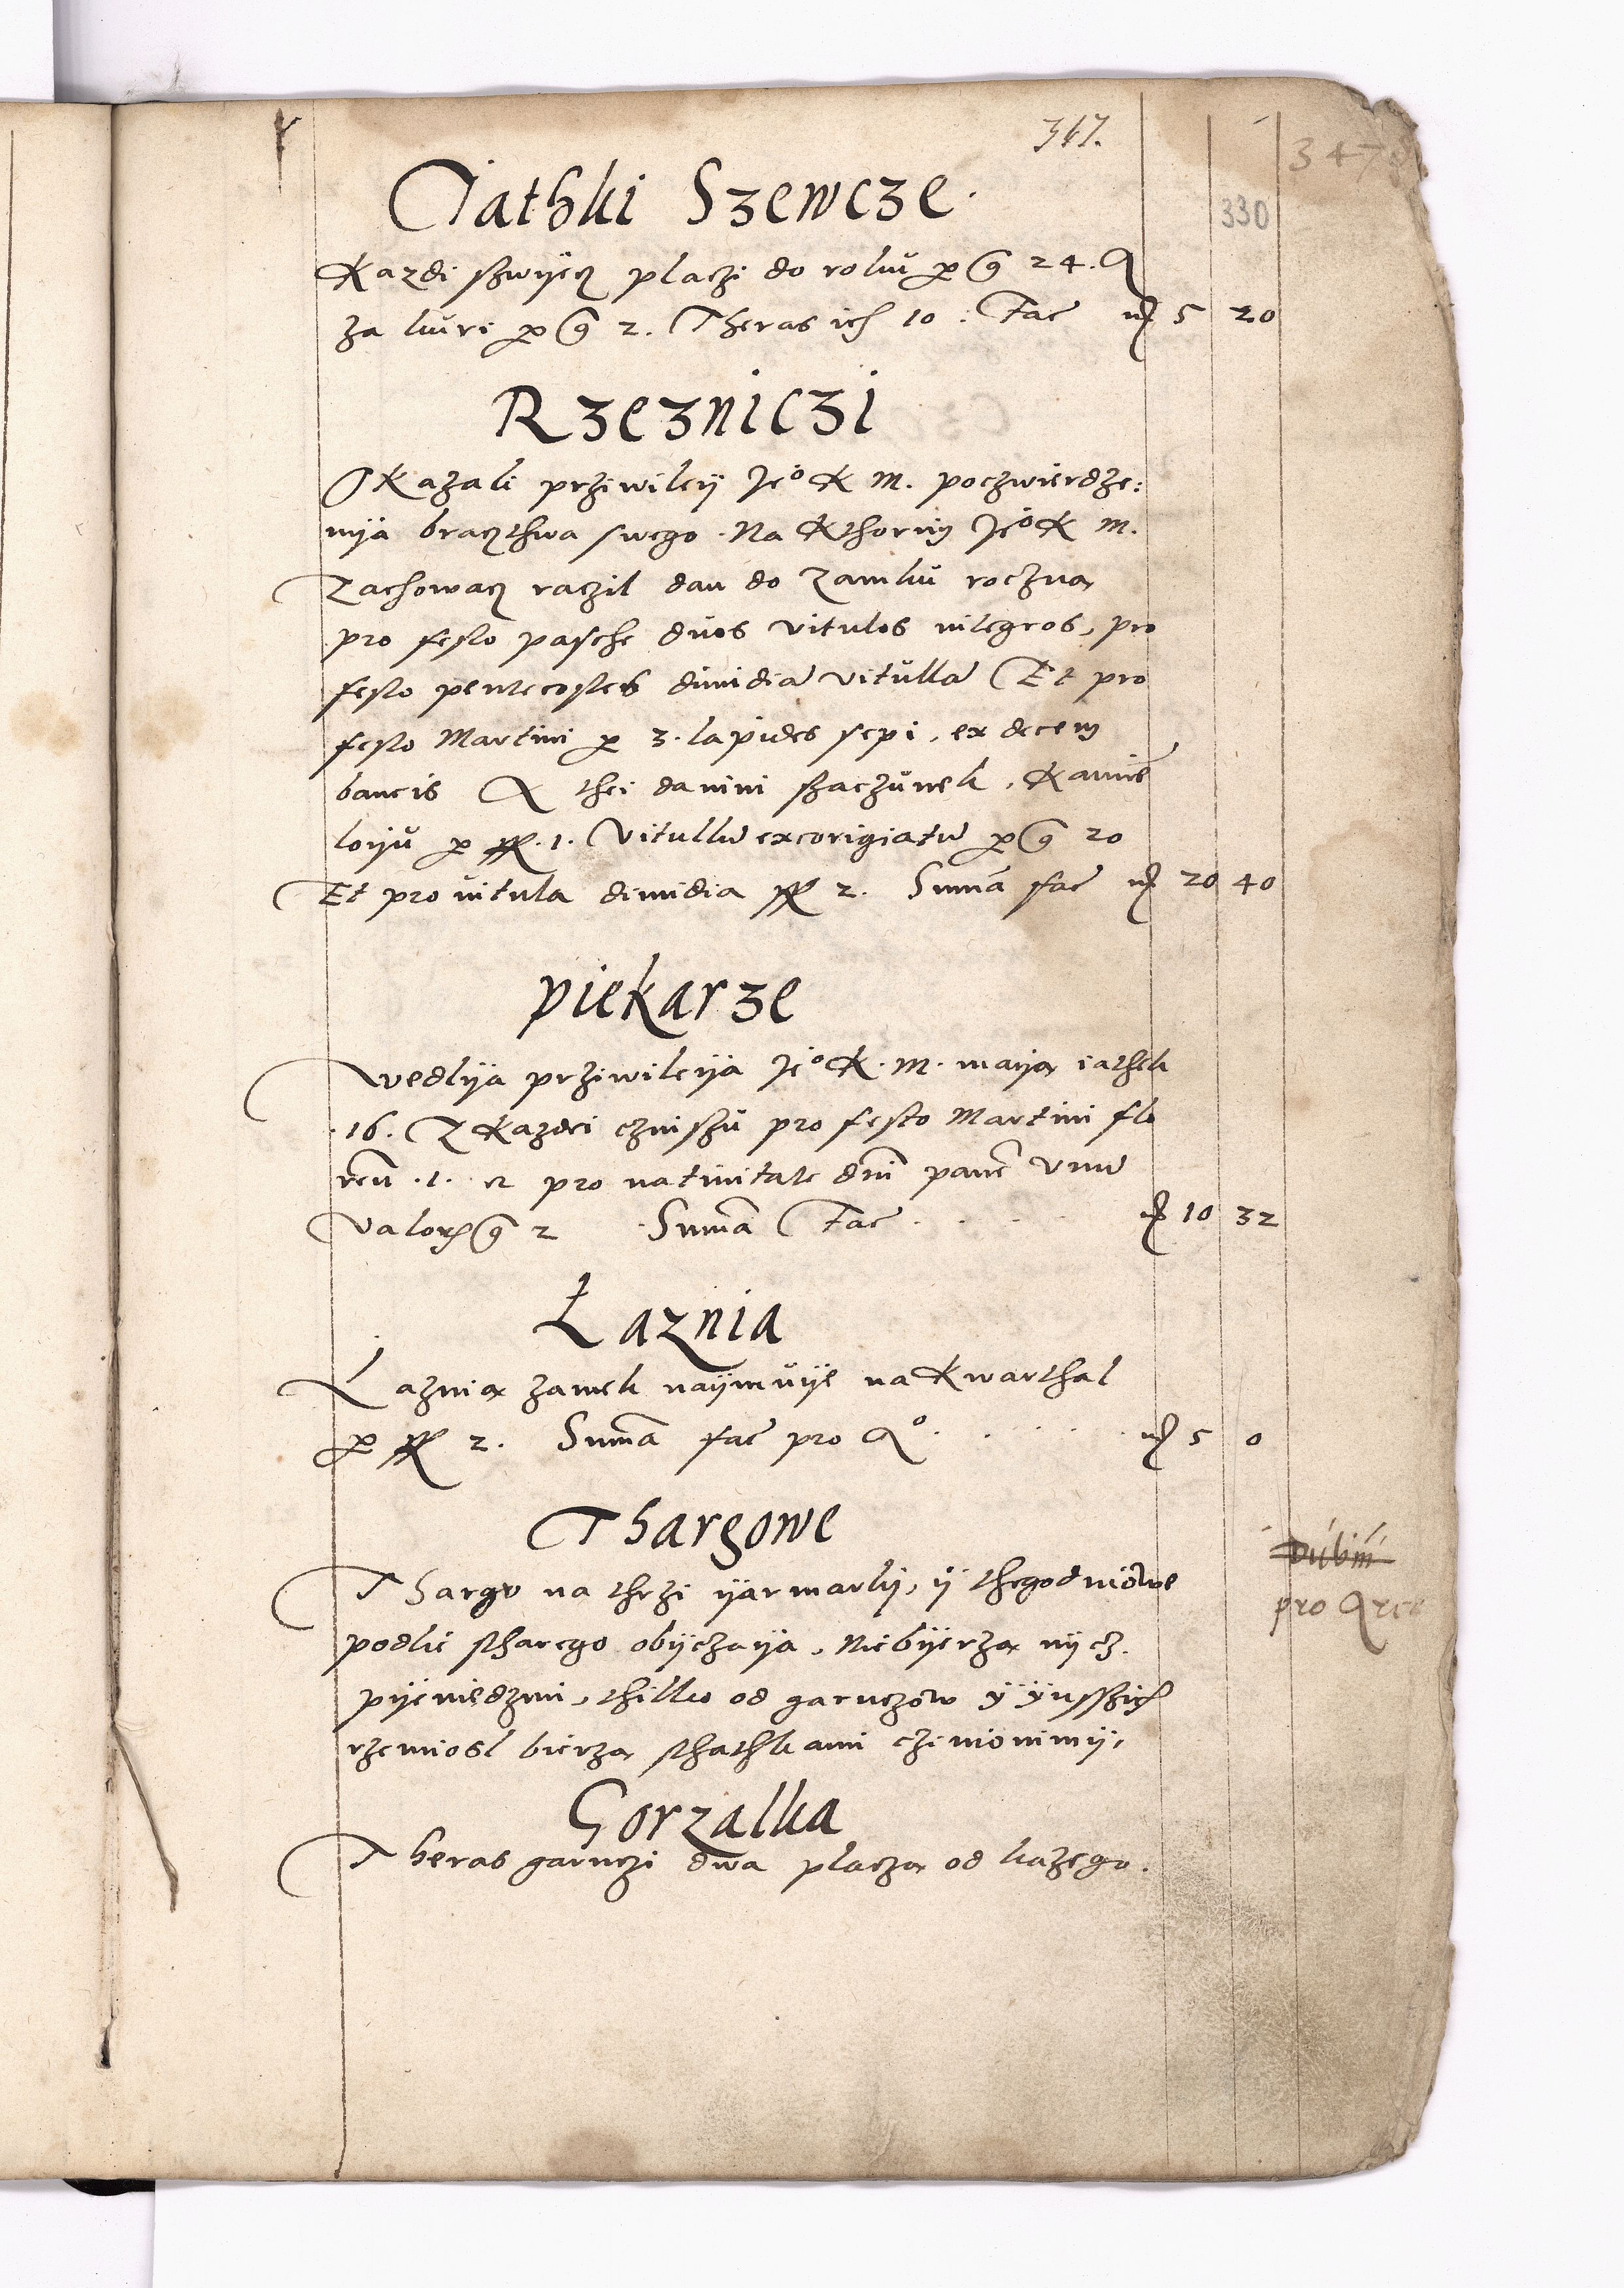 347.
347
330
Jathki Szewcze.
Kazdi szwijecz placzi do roku per g 24. A
za kuri per g 2. Theras ich 10 : Fac mr 5 20
Rzezniczi
Okazali prziwileij Je° K M. poczwierdze:
nija braczthwa swego. Na Kthorim Je° K M.
Zachowacz raczil dan do Zamku roczną
pro festo pasche duos vitulos integros, pro
festo pentecostes dimidia vitulla Et pro
festo Martini per 3. lapides sepi, ex decem
bancis A thei danini szaczunek, Kamie
loiju per sex. 1. Vitullu excorigiatu per g 20
Et pro vitula dimidia sex 2. Suma fac mr 20 40
piekarze
Wedlija prziwileija Je° K. M. maiją iathek
.16. Z Kazdei czinszu pro festo Martini flo
ren .1. et pro nativitate dni pane vnu
valoris g 2 Suma Fac mr 10 32
Łaznia
Laznią zamek naijmuije na Kwarthal
per sex 2. Suma fac pro A° mr 5 0
Thargowe
Thargo na thrzi ijarmarki, ij thegodniowe
podlie stharego obijczaija, Niebijerzą nijcz
pijeniedzmi, thilko od garnczow ij ijnsszich
rzemiosl bierzą sthathkami czinionimij,
dubiu
pro Arce
Gorzalka
Theras garnczi dwa placzą od kazego.